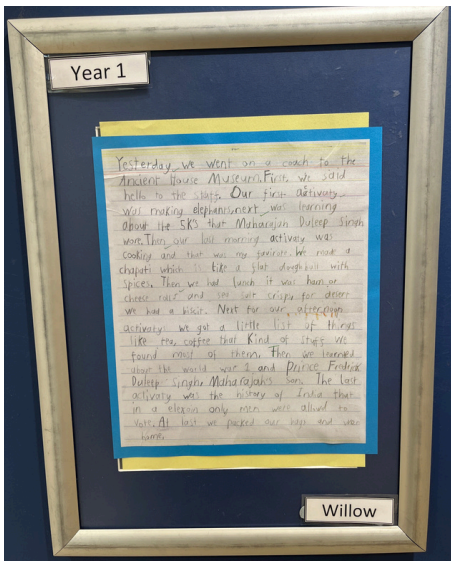 Year 1
Yesterday we went on a coach to the
Ancient House Museum. First, we said
hello to the staff. Our first activaty
was making elephants, next was learning
about the 5K's that Maharajah Duleep Singh
wore. Then our last morning activaty was
cooking and that was my favirote. We made a
chapati which is like a flat doughball with
spices. Then we had lunch it was ham or
cheese and sea salt crisps, for desert
we had a biscit. Next for our afternoon
activaty we got a little list of things
like tea, coffee that kind of stuff. We
found most of them. Then we learned
about the world war 1 and Prince Fredrick
Duleep Singh, Maharajah's son. The last
activaty was the history of India that
in a only men were allowd to
vote. At last we packed our bags and
home.
Willow